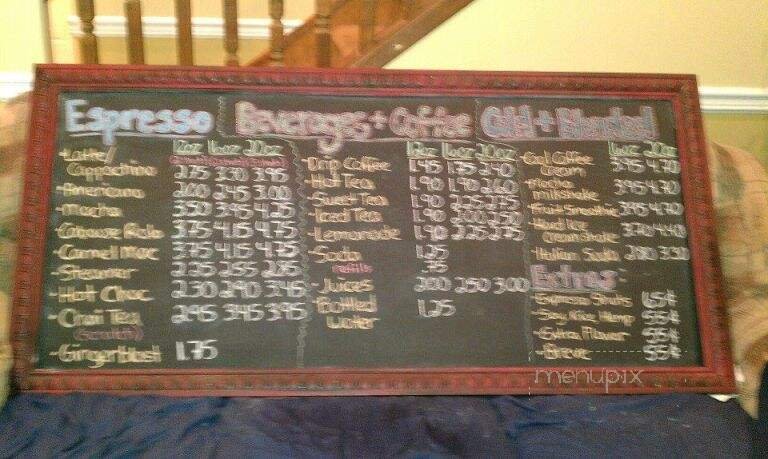 Espresso
12oz 16oz 20oz
-Latte/
Cappachino 2.75 3.30 3.95
-Americano 2.00 2.45 3.00
-Mocha 3.50 3.95 4.25
3.75 4.15 4.75
-Carmel Mac 3.75 4.15 4.75
-Steamer 2.25 2.55 2.85
-Hot Choc. 2.30 2.90 3.45
-Chai Tea 2.95 3.45 3.95
-Gingerblast 1.75
Beverages + Coffee
12oz 16oz 20oz
-Drip Coffee 1.45 1.75 2.40
-Hot Tea 1.90 1.90 2.60
-Sweet Tea 1.90 2.25 2.75
-Iced Tea 1.90 2.00 2.50
-Lemonade 1.90 2.25 2.75
-Soda 1.25
refills .75
-Juices 2.00 2.50 3.00
-Bottled
Water 1.25
Cold + Blended
16oz 20oz
Coffee
Cream 3.95 4.70
-Mocha
milkshake 3.95 4.70
-Fruit Smoothie 3.95 4.70
-Hard Ice
Cream shake 3.70 4.40
-Italian Soda 2.80 3.30
Extras:
-Espresso Shots 65¢
-Soy, Rice, Hemp 55¢
-Extra Flavor 55¢
-Breve 55¢
menupix